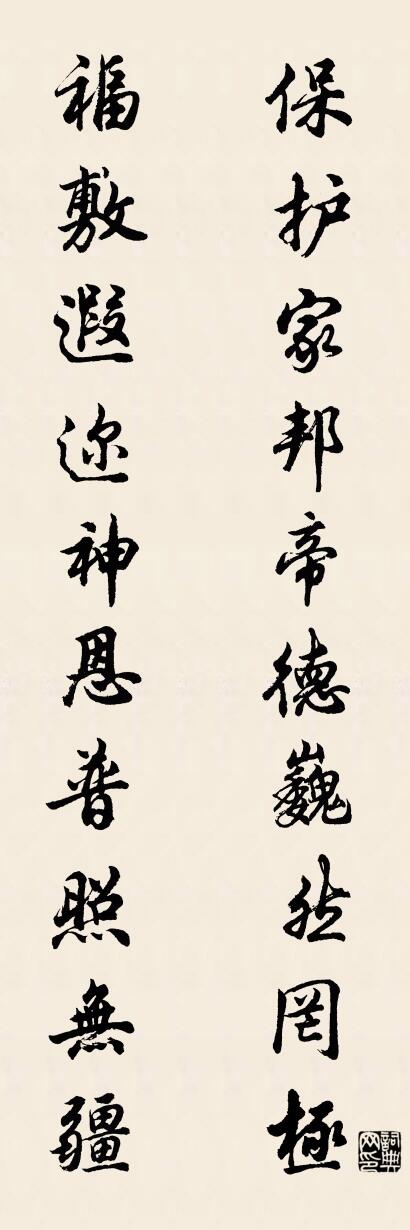 保护家邦帝德巍然罔極
福敷遐迩神恩普照無疆
詞典網印